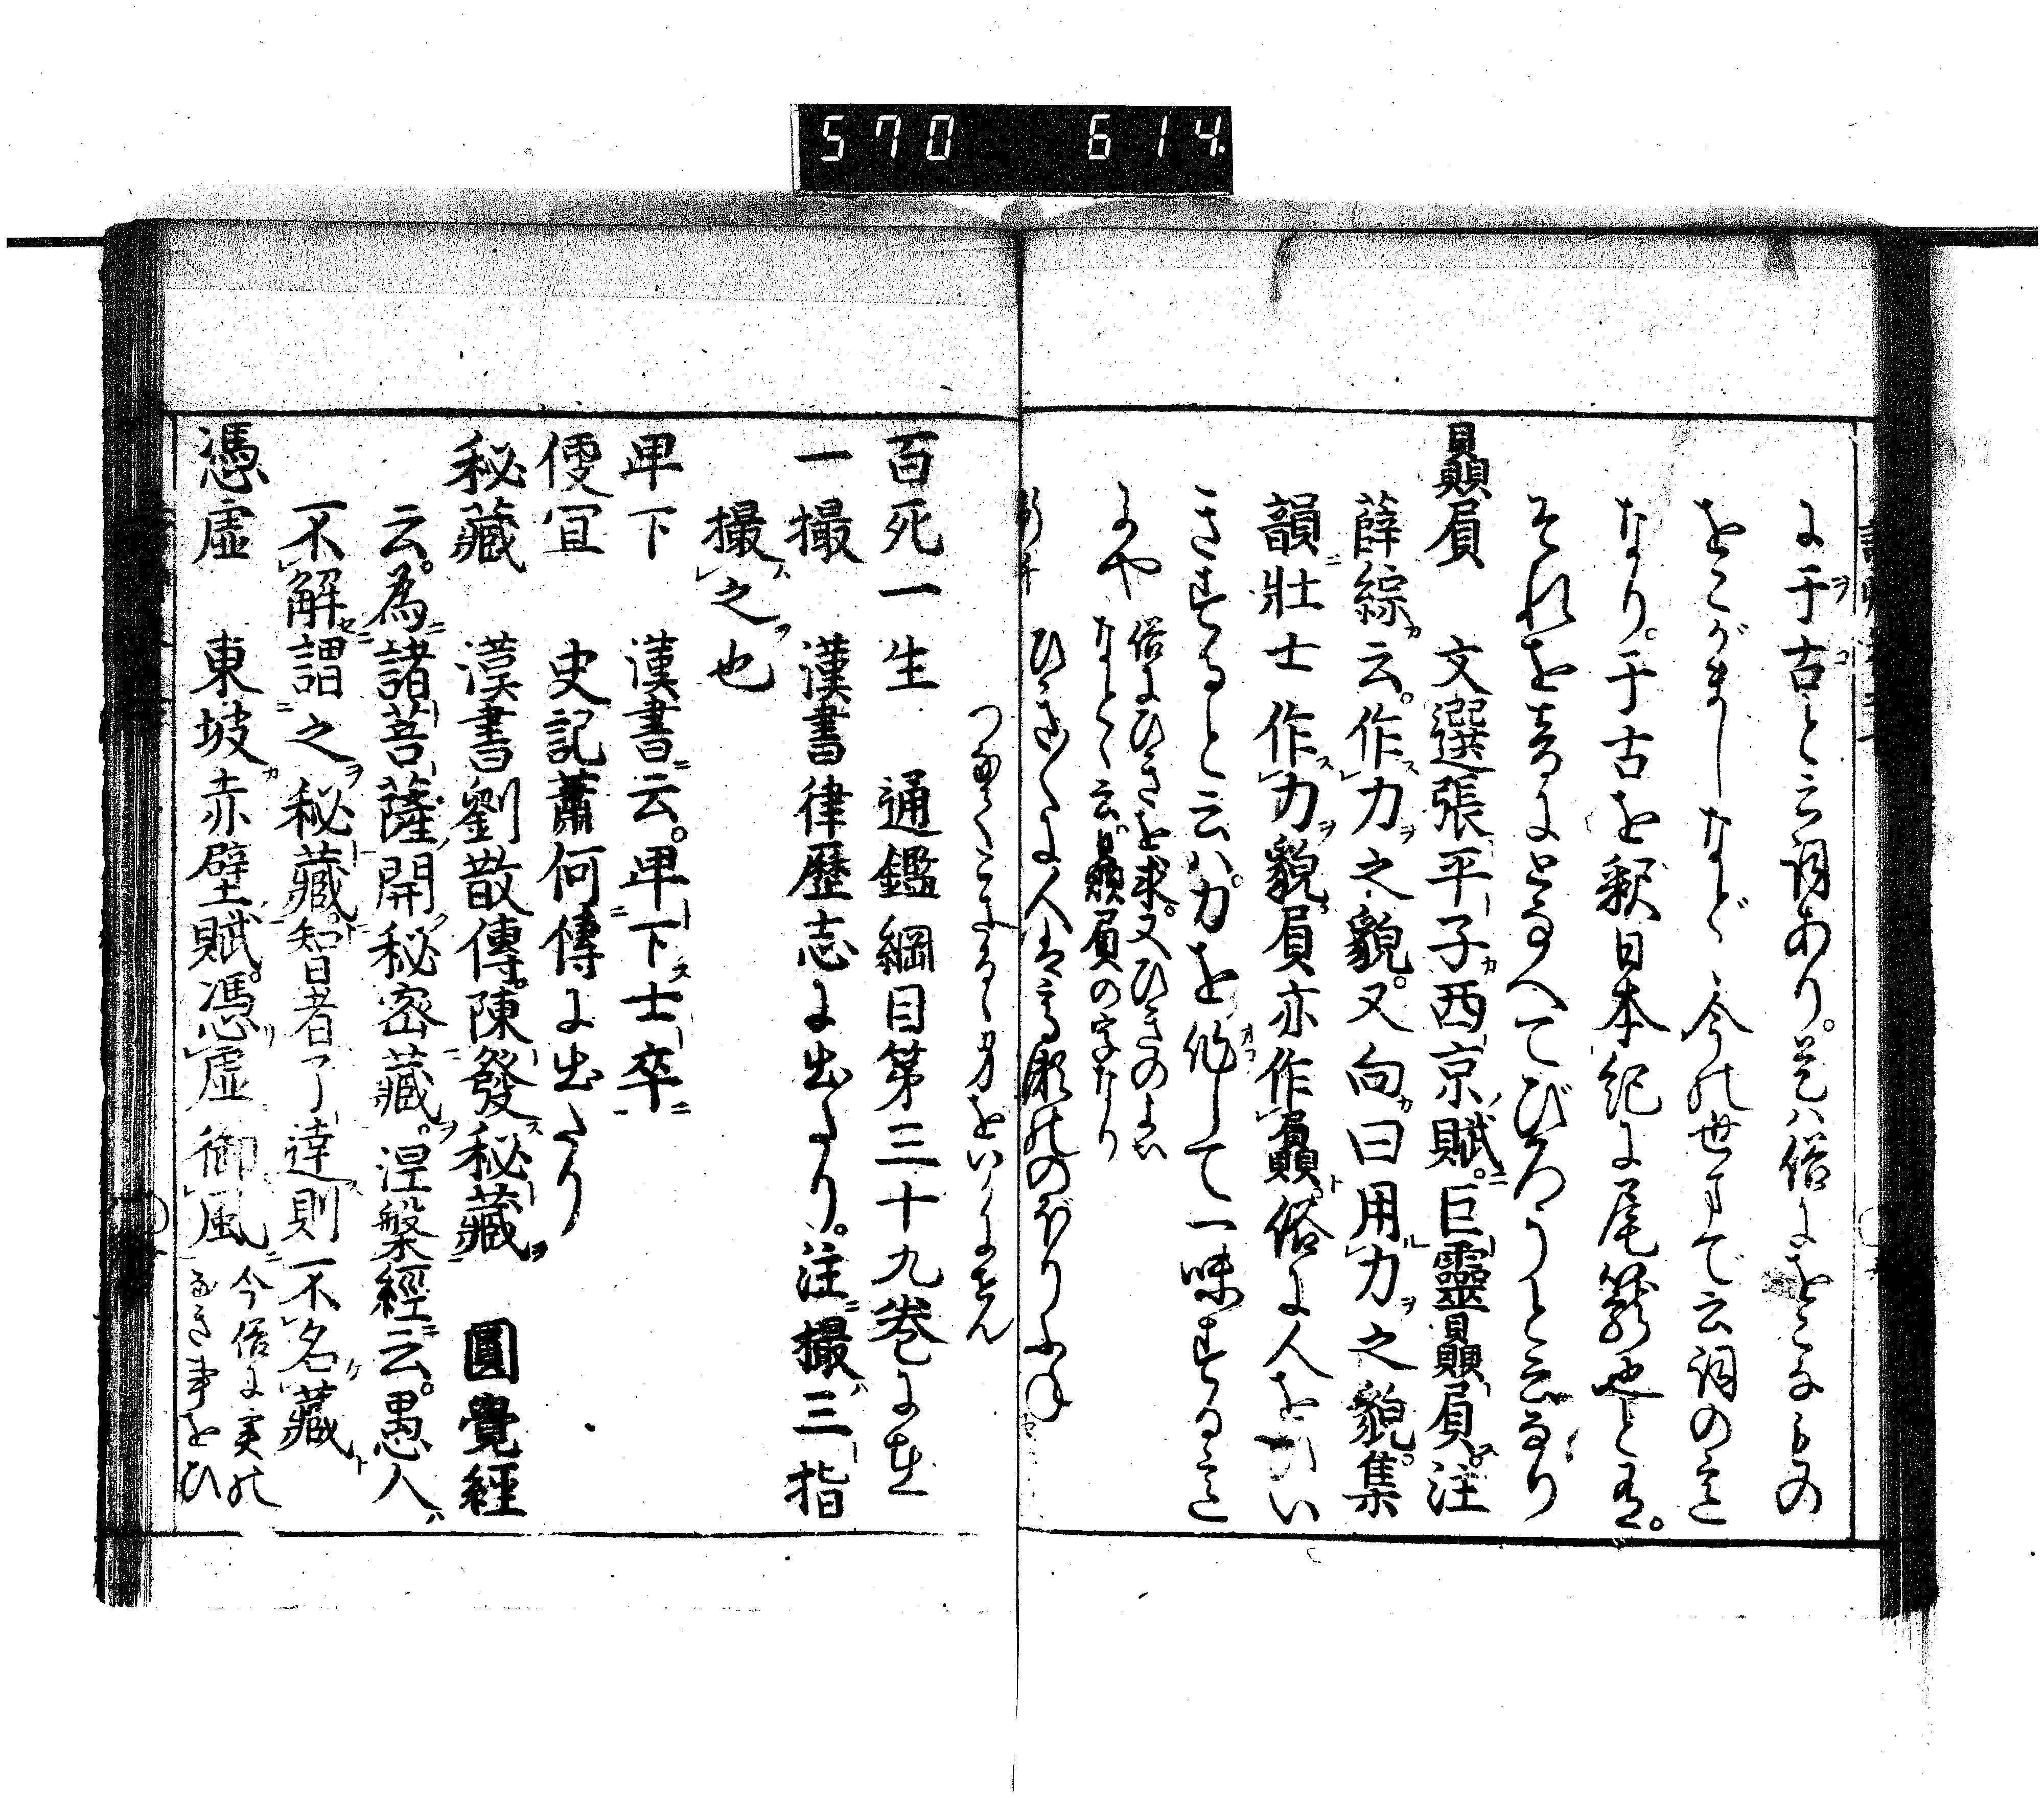 570 614
に于古と云詞あり。是ハ俗にをこなもの
をこがましなど、今の世まで云詞の意
なり。于古を釈日本紀に尾籠也と有。
それを音にとなへてびろうと云なり
贔屓 文選張平子西京賦。巨靈贔屓。注
薛綜云。作力之貌。又向曰用力之貌。集
韻壯士作力貌。屓亦作贔。俗に人をひい
きすると云ハ。力を作して一味する意
にや 俗にひきを求。又ひきのよい
なとゝ云。贔屓の字なり
百死一生 通鑑綱目第三十九巻に在
一撮 漢書律歷志に出たり。注撮三指
撮之也
卑下 漢書云。卑下士卒
便宜 史記蕭何傳に出たり
秘藏 漢書劉散傳。陳發秘藏 圓覺經
云。為諸菩薩開秘密藏。涅槃經云。愚人
不解謂之秘藏。智者了達則不名藏
憑虛 東坡赤壁賦。憑虛御風 今俗に実の
なき事をひ